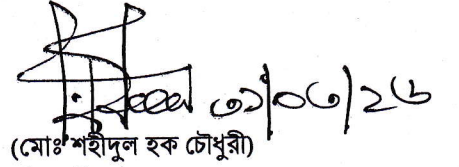 ৩১/০৩/২৬
(মোঃ শহীদুল হক চৌধুরী)